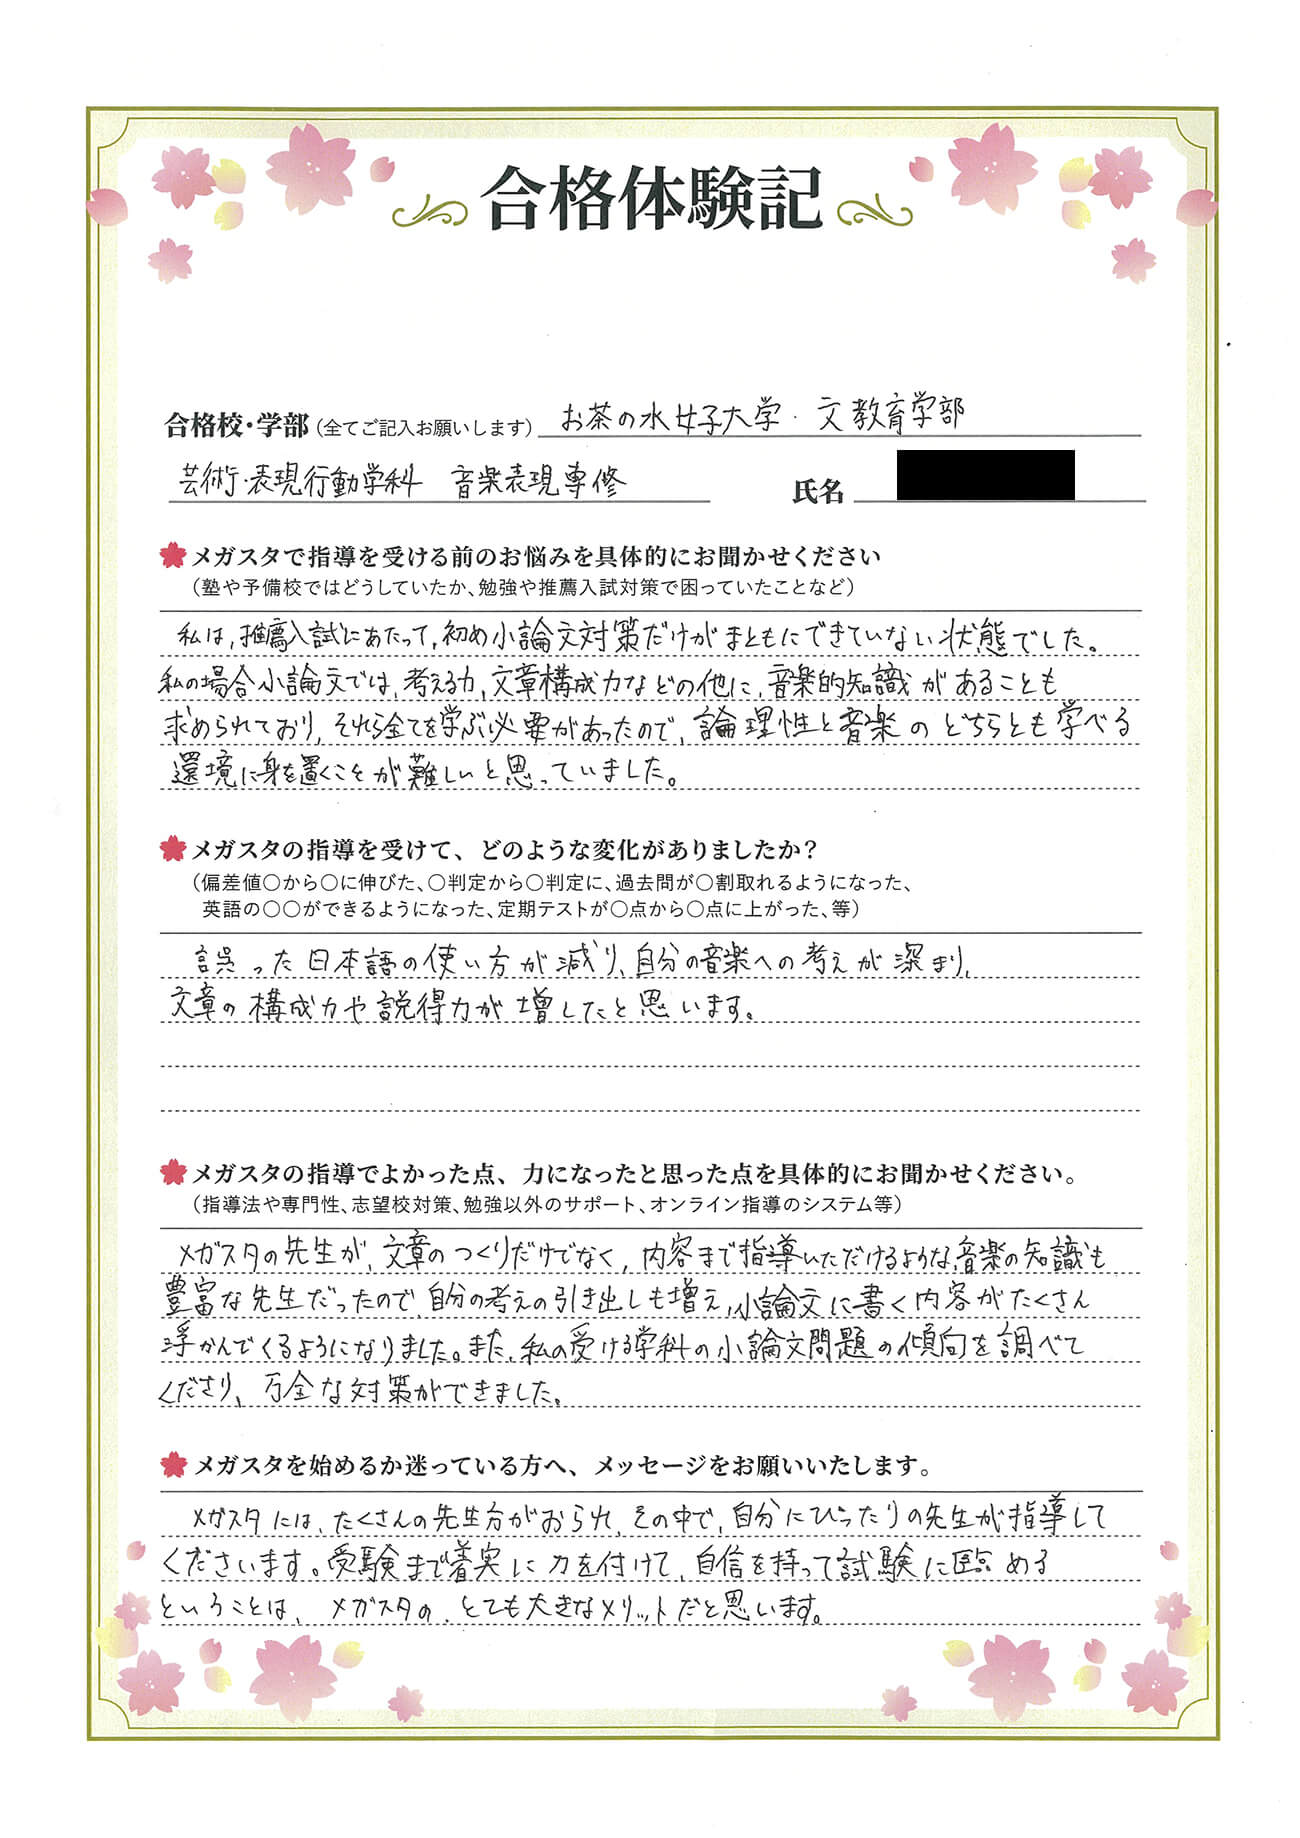 合格体験記
合格校・学部（全てご記入お願いします）お茶の水女子大学・文教育学部
芸術・表現行動学科　音楽表現専修　氏名
メガスタで指導を受ける前のお悩みを具体的にお聞かせください
（塾や予備校ではどうしていたか、勉強や推薦入試対策で困っていたことなど）
私は、推薦入試にあたって、初め小論文対策だけがまともにできていない状態でした。
私の場合小論文では、考える力、文章構成力などの他に、音楽的知識があることも
求められており、それら全てを学ぶ必要があったので、論理性と音楽のどちらとも学べる
環境に身を置くことが難しいと思っていました。
メガスタの指導を受けて、どのような変化がありましたか？
（偏差値〇から〇に伸びた、〇判定から〇判定に、過去問が〇割取れるようになった、
英語の〇〇ができるようになった、定期テストが〇点から〇点に上がった、等）
誤った日本語の使い方が減り、自分の音楽への考えが深まり、
文章の構成力や説得力が増したと思います。
メガスタの指導でよかった点、力になったと思った点を具体的にお聞かせください。
（指導法や専門性、志望校対策、勉強以外のサポート、オンライン指導のシステム等）
メガスタの先生が、文章のつくりだけでなく、内容まで指導いただけるような、音楽の知識も
豊富な先生だったので、自分の考えの引き出しも増え、小論文に書く内容がたくさん
浮かんでくるようになりました。また、私の受ける学科の小論文問題の傾向を調べて
くださり、万全な対策ができました。
メガスタを始めるか迷っている方へ、メッセージをお願いいたします。
メガスタには、たくさんの先生方がおられ、その中で、自分にぴったりの先生が指導して
くださいます。受験まで着実に力を付けて、自信を持って試験に臨める
ということは、メガスタの、とても大きなメリットだと思います。